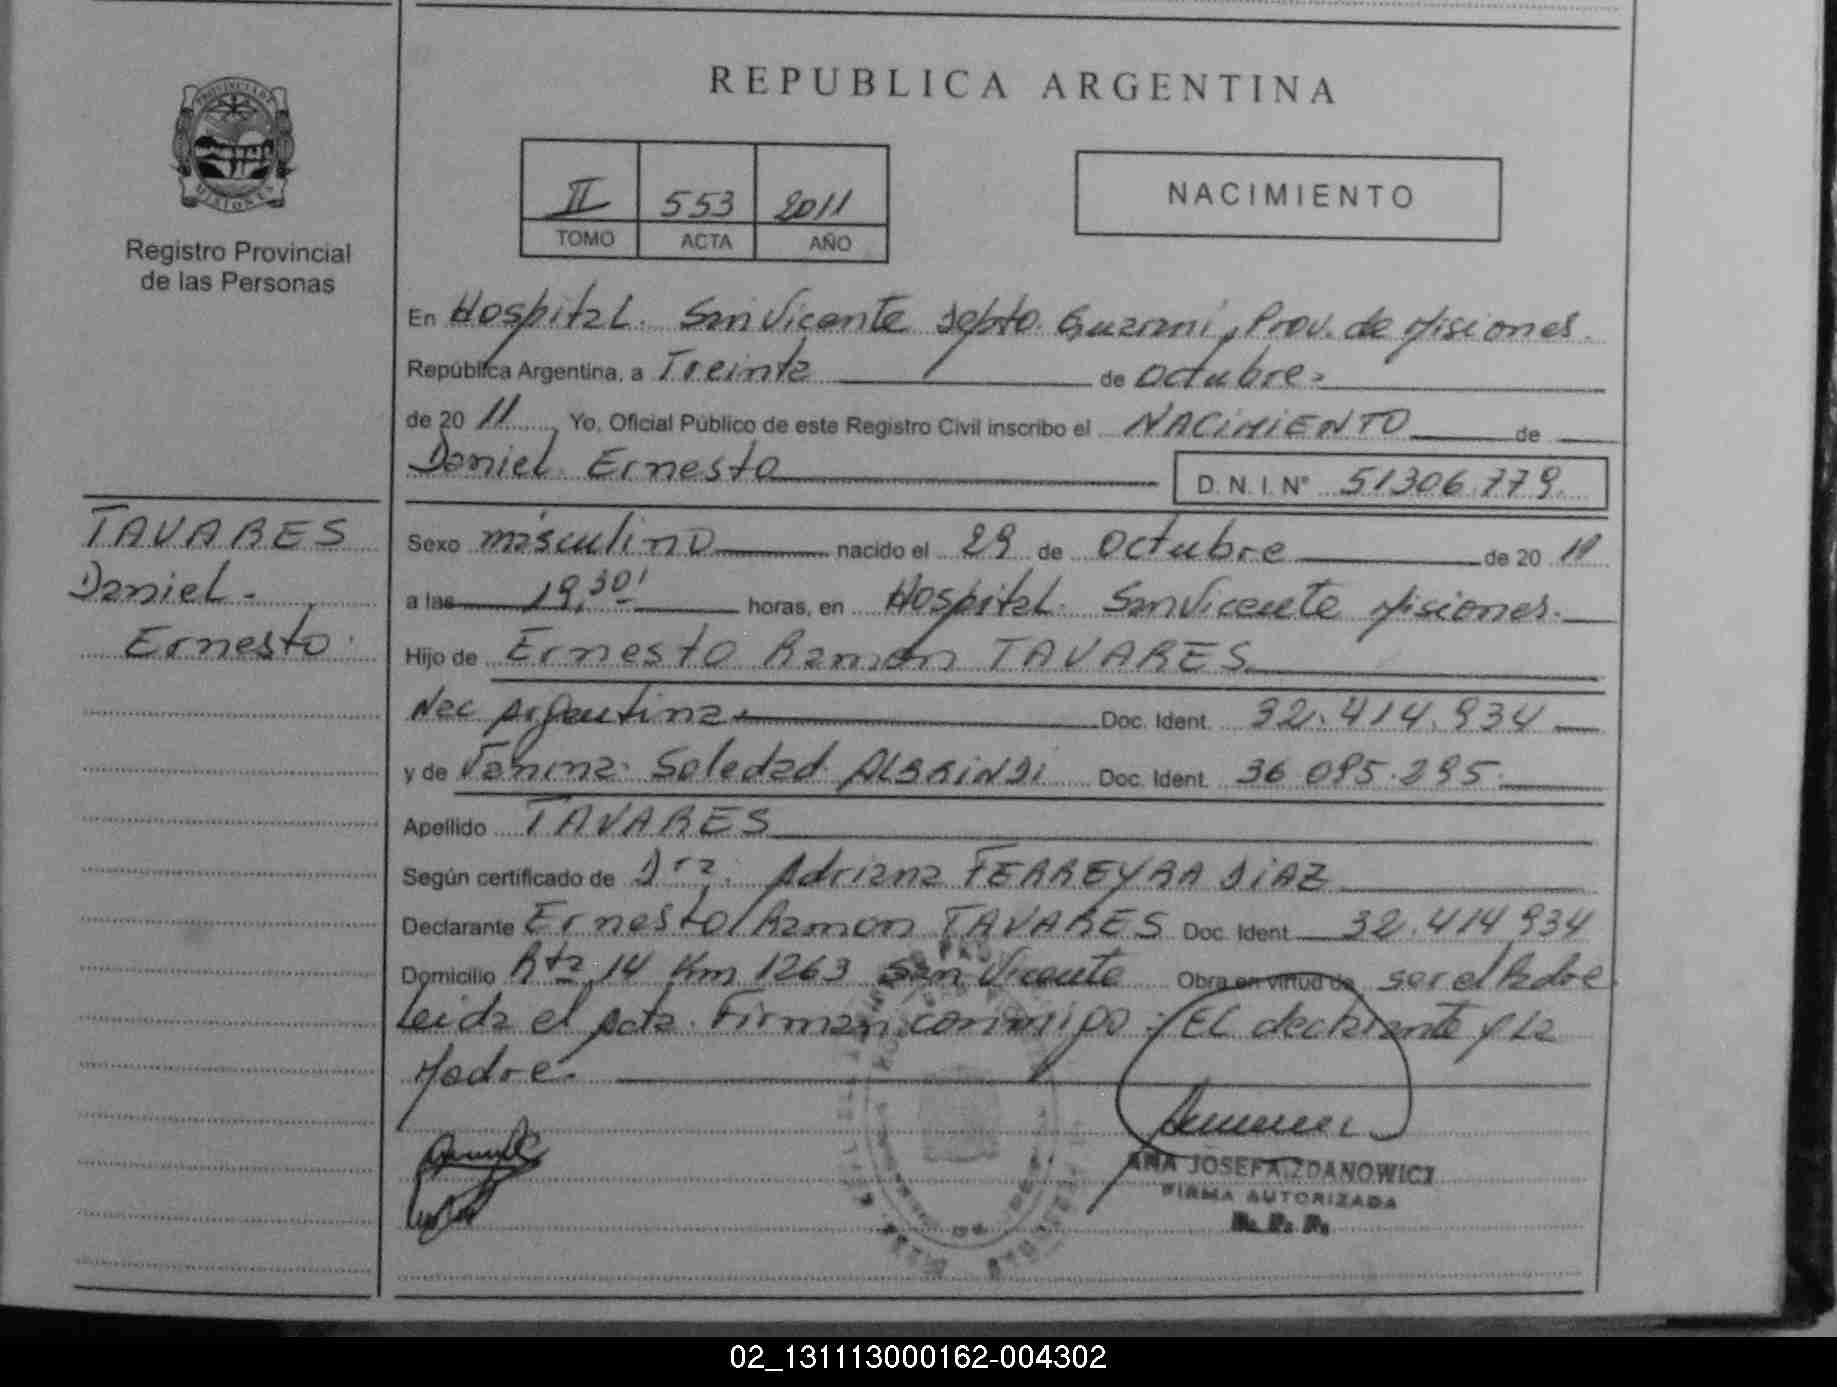 REPUBLICA ARGENTINA
PROVINCIA DE
MISIONES
Registro Provincial
de las Personas
II 553 2011
TOMO ACTA AÑO
NACIMIENTO
En Hospital. San Vicente Depto. Guaraní, Prov. de Misiones.
República Argentina, a Treinta de Octubre.
de 20 11 Yo, Oficial Público de este Registro Civil inscribo el NACIMIENTO de
Daniel Ernesto
D. N. I. Nº 51306.779.
TAVARES
Daniel.
Ernesto.
Sexo masculino nacido el 29 de Octubre de 20 11
a las 19,30' horas, en Hospital. San Vicente Misiones.
Hijo de Ernesto Ramon TAVARES
Nac Argentina. Doc. Ident. 32.414.934
y de Soledad Doc. Ident. 36 095.295.
Apellido TAVARES
Según certificado de Dra. Adriana FERREYRA DIAZ
Declarante Ernesto Ramon TAVARES Doc. Ident. 32.414 934
Domicilio Rta 14 Km 1263 San Vicente Obra en virtud de ser el Padre
Leida el Acta. Firman conmigo. El declarante y La
Madre.
ANA JOSEFA ZDANOWICZ
FIRMA AUTORIZADA
R. P. P.
02_131113000162-004302